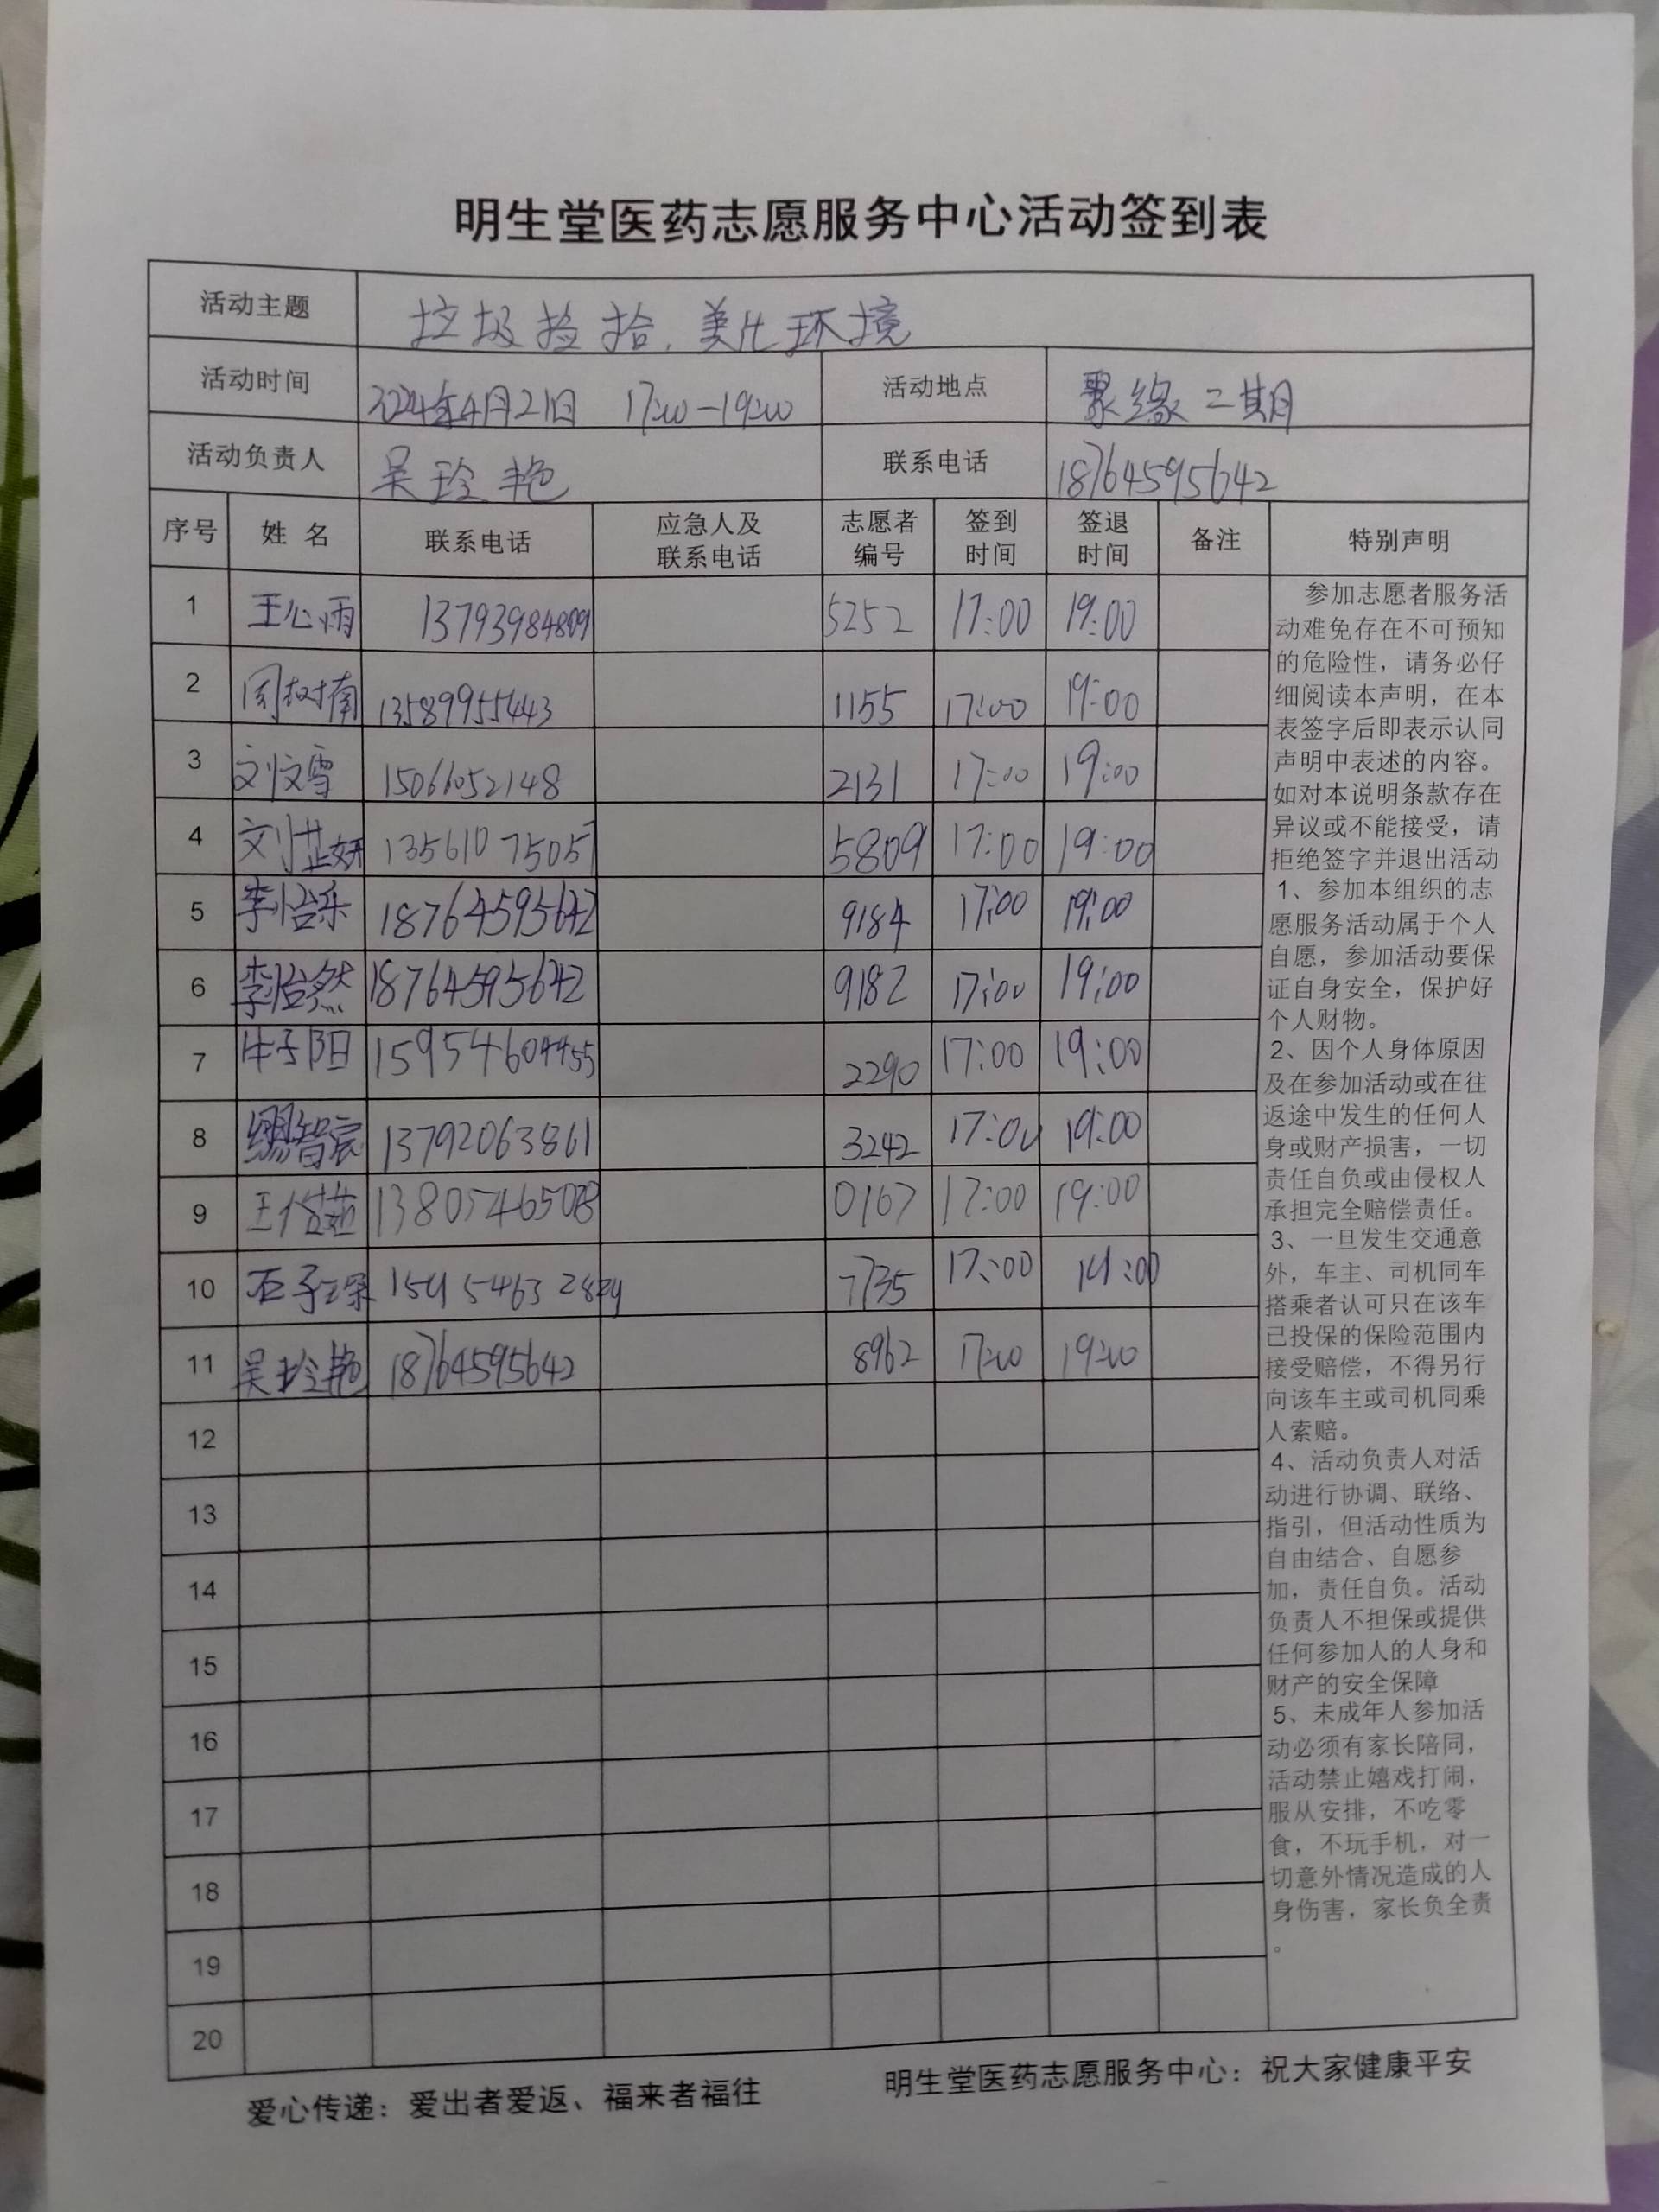 明生堂医药志愿服务中心活动签到表
活动主题 垃圾捡拾，美化环境
活动时间 2024年4月21日 17:00-19:00 活动地点 聚缘二期
活动负责人 吴玲艳 联系电话 18764595642
序号 姓名 联系电话 应急人及联系电话 志愿者编号 签到时间 签退时间 备注 特别声明
1 王心雨 13793984809 5252 17:00 19:00
2 周树南 13589955443 1155 17:00 19:00
3 刘文雪 15066052148 2131 17:00 19:00
4 刘芷妍 13561075057 5809 17:00 19:00
5 李怡乐 18764595642 9184 17:00 19:00
6 李怡然 18764595642 9182 17:00 19:00
7 牛子阳 15954604455 2290 17:00 19:00
8 智宸 13792063861 3242 17:00 19:00
9 王 0167 17:00 19:00
10 石子琛 7735 17:00
11 吴玲艳 18764595642 8962 17:00 19:00
12
13
14
15
16
17
18
19
20
参加志愿者服务活
动难免存在不可预知
的危险性，请务必仔
细阅读本声明，在本
表签字后即表示认同
声明中表述的内容。
如对本说明条款存在
异议或不能接受，请
拒绝签字并退出活动
1、参加本组织的志
愿服务活动属于个人
自愿，参加活动要保
证自身安全，保护好
个人财物。
2、因个人身体原因
及在参加活动或在往
返途中发生的任何人
身或财产损害，一切
责任自负或由侵权人
承担完全赔偿责任。
3、一旦发生交通意
外，车主、司机同车
搭乘者认可只在该车
已投保的保险范围内
接受赔偿，不得另行
向该车主或司机同乘
人索赔。
4、活动负责人对活
动进行协调、联络、
指引，但活动性质为
自由结合、自愿参
加，责任自负。活动
负责人不担保或提供
任何参加人的人身和
财产的安全保障
5、未成年人参加活
动必须有家长陪同，
活动禁止嬉戏打闹，
服从安排，不吃零
食，不玩手机，对一
切意外情况造成的人
身伤害，家长负全责
。
爱心传递：爱出者爱返、福来者福往 明生堂医药志愿服务中心：祝大家健康平安